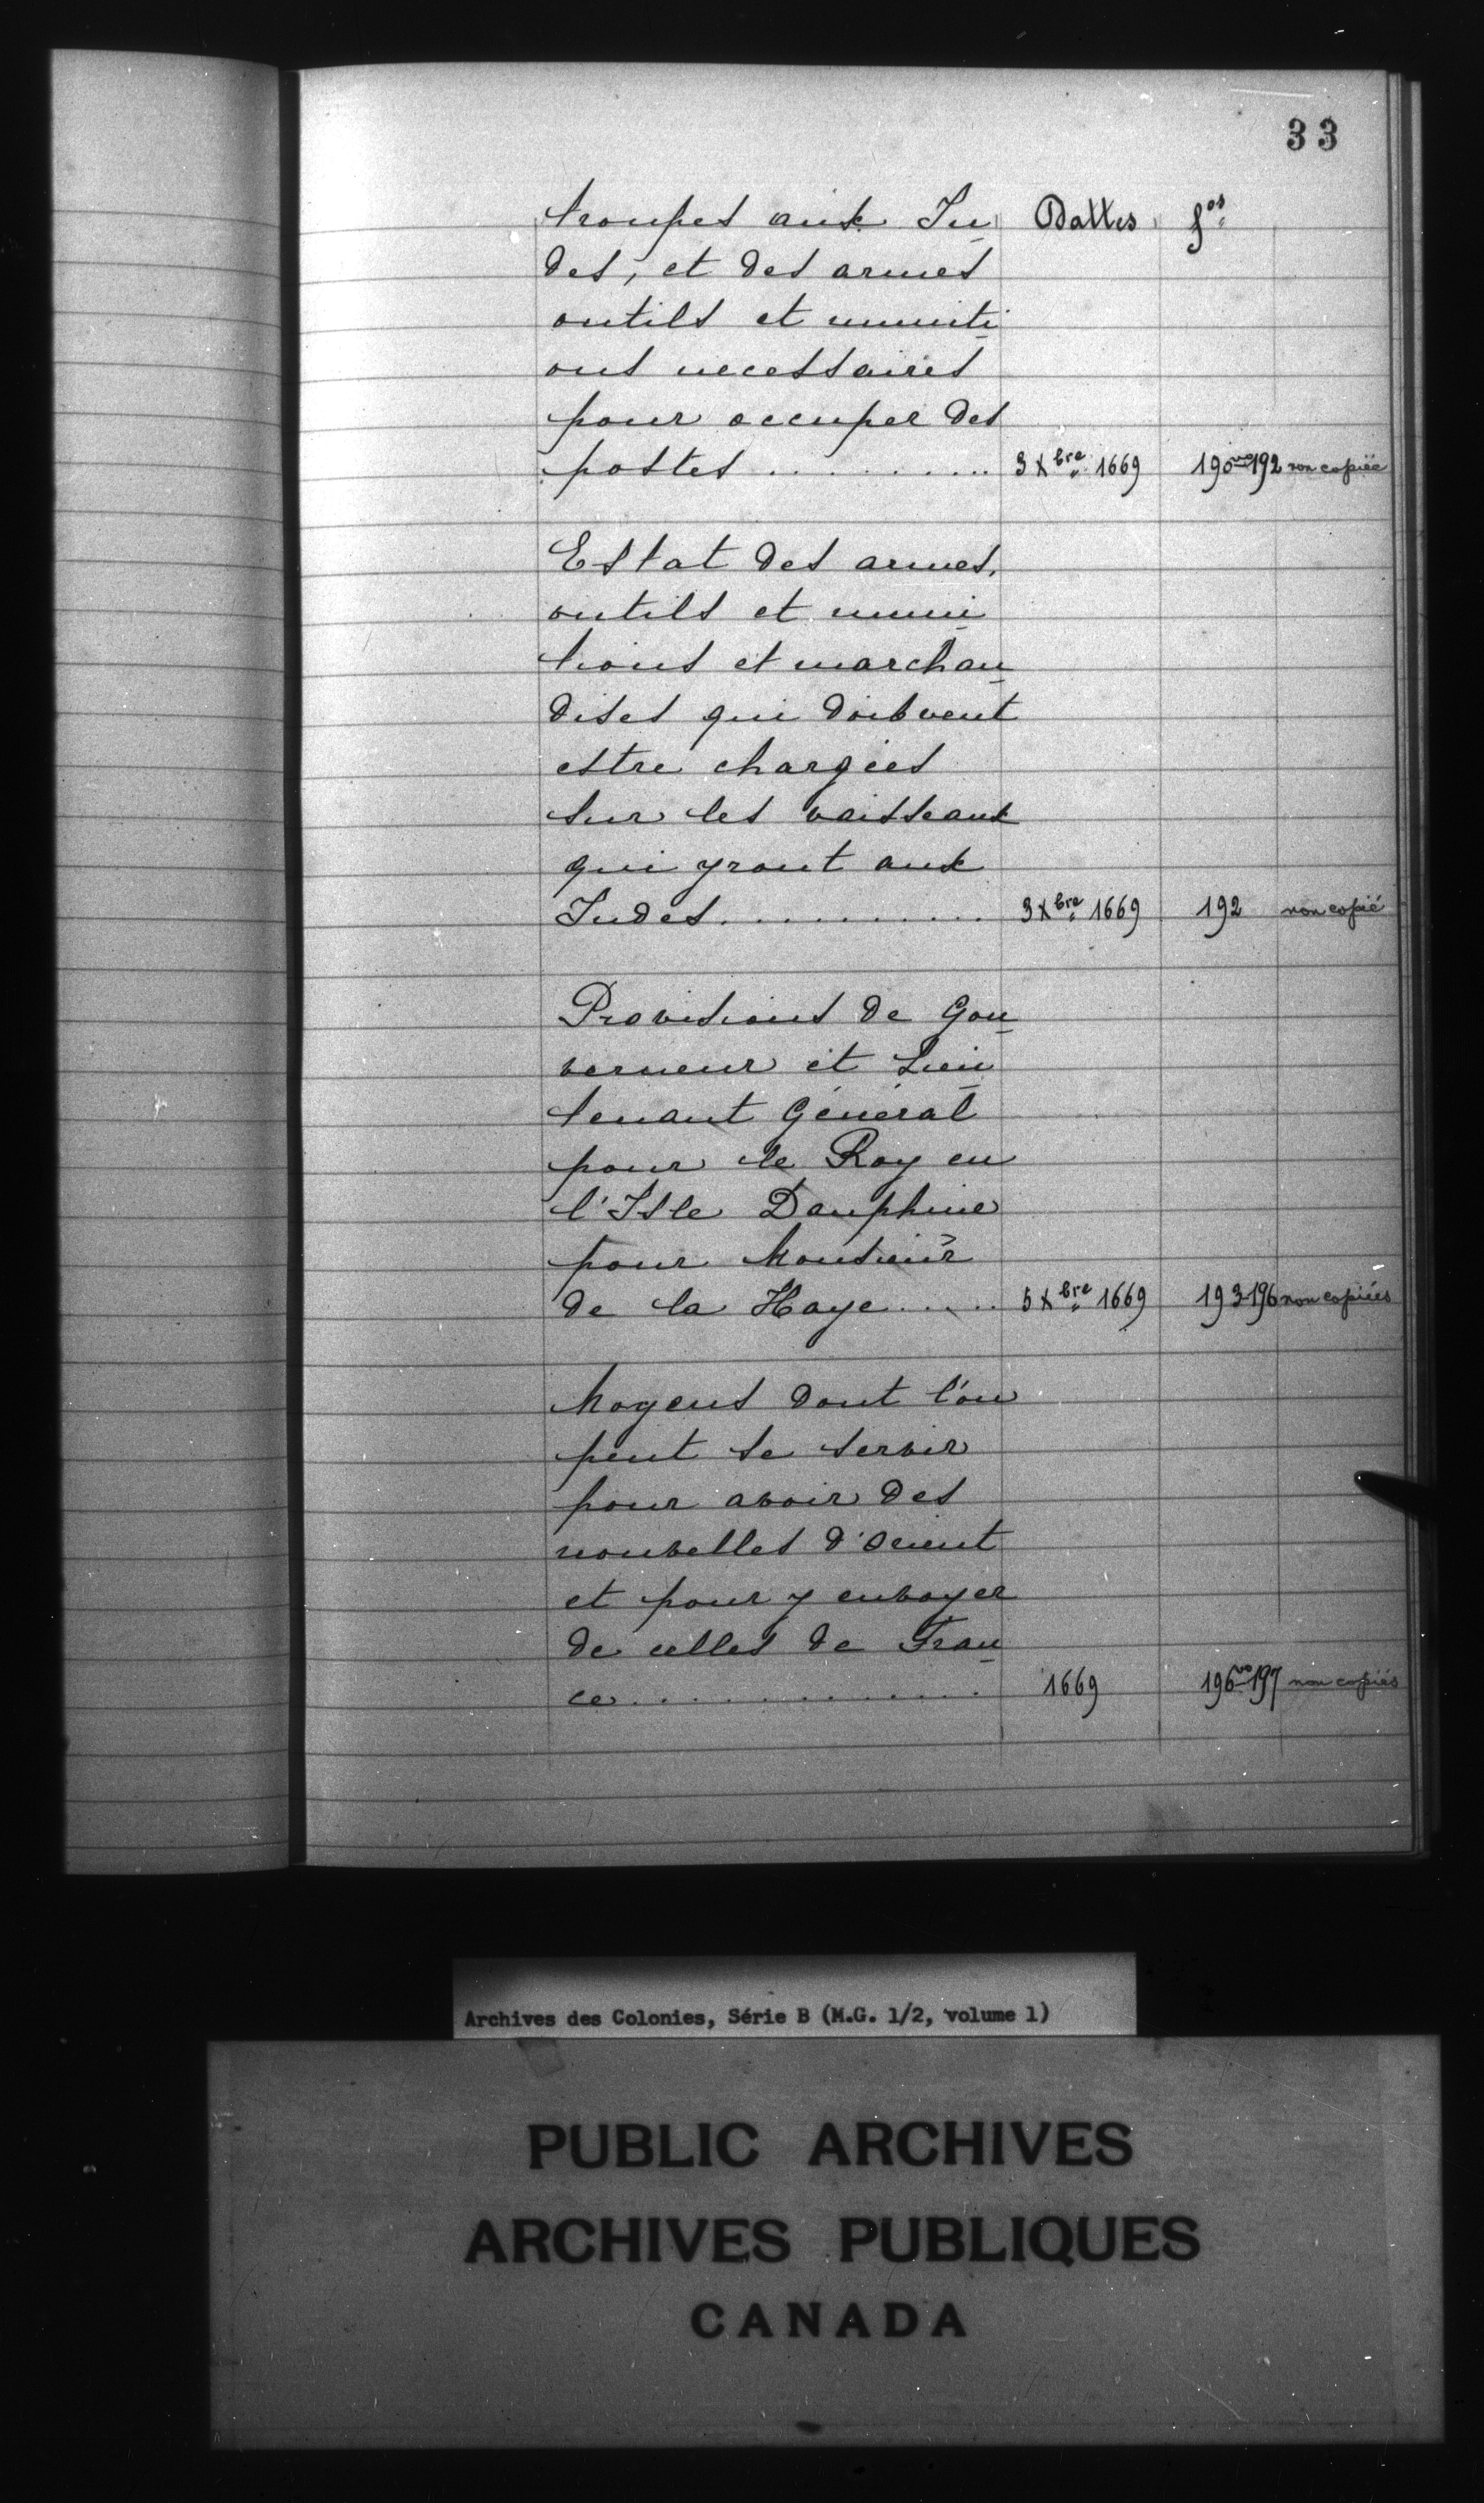 33
troupes aux In- Dattes fos
des, et des armes
outils et muniti-
ons necessaires
pour occuper des
postes ........... 3 Xbre 1669 190vo-192 non copiée
Estat des armes,
outils et muni-
tions et marchan-
dises qui doibvent
estre chargées
sur les vaisseaux
qui yront aux
Indes ........... 3 Xbre 1669 192 non copié
Provisions de Gou-
verneur et Lieu-
tenant Général
pour le Roy en
l'Isle Dauphine
pour Monsieur
de la Haye ..... 5 Xbre 1669 193-196 non copiées
Moyens dont l'on
peut se servir
pour avoir des
nouvelles d'Orient
et pour y envoyer
de celles de Fran-
ce ............. 1669 196vo-197 non copiés
Archives des Colonies, Série B (M.G. 1/2, volume 1)
PUBLIC ARCHIVES
ARCHIVES PUBLIQUES
CANADA